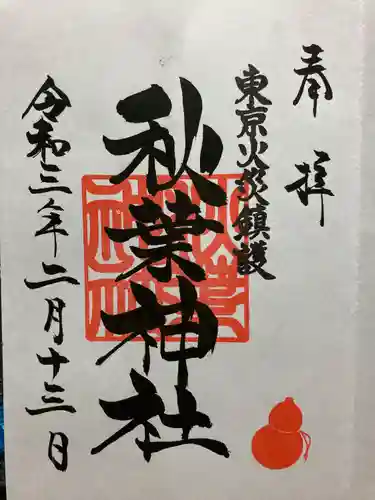 奉拝
東京火災鎮護
秋葉神社
令和三年二月十三日